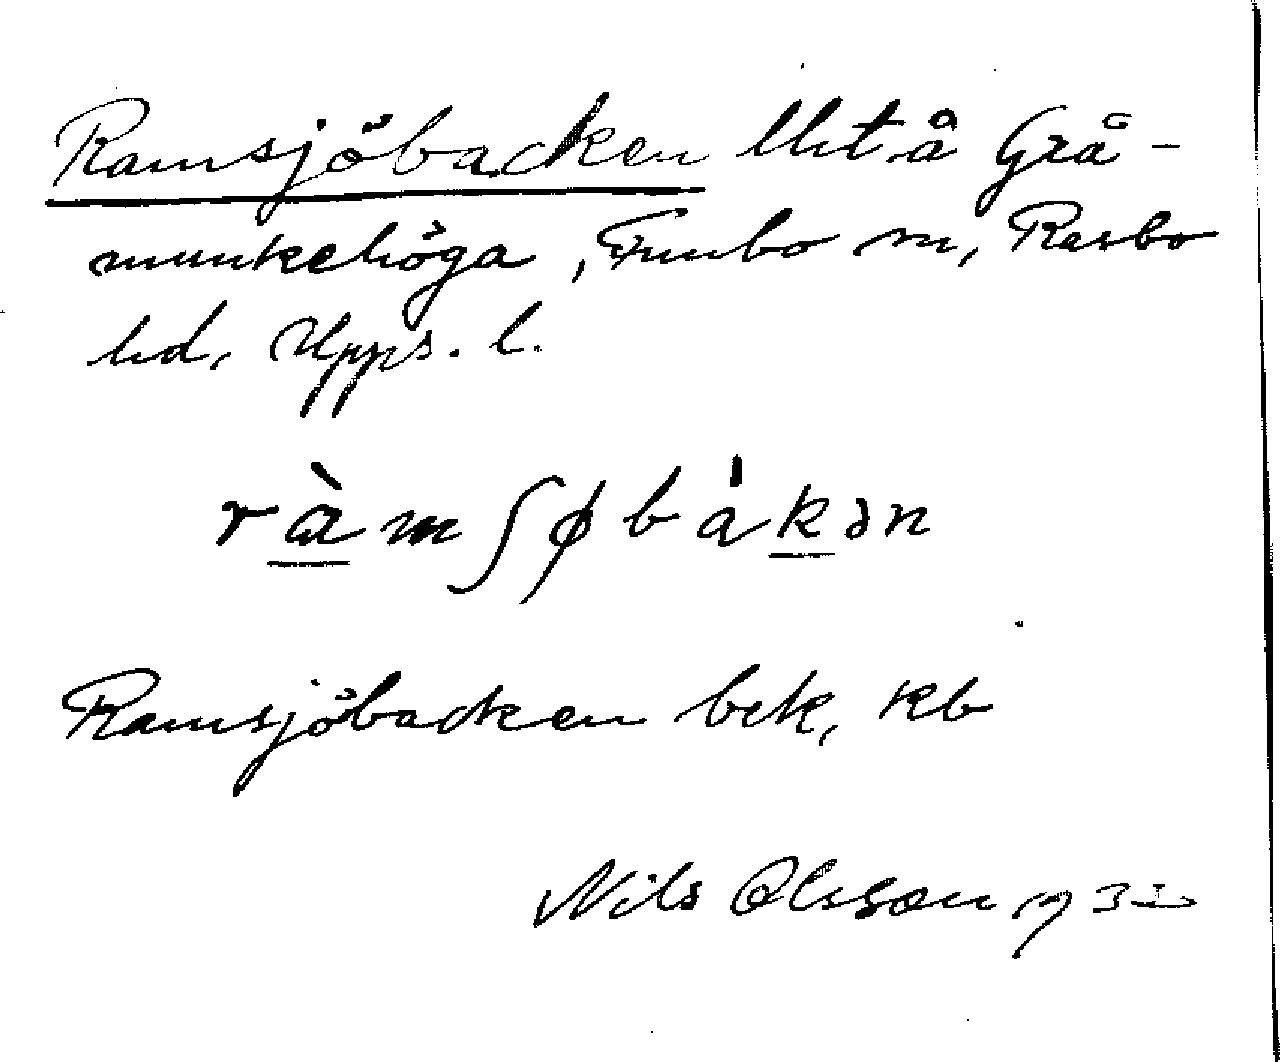 Ramsjöbacken lht å Grå-
munkehöga, Funbo sn, Rasbo
hd, Upps. l.
ràmʃøbákən
Ramsjöbacken bek, kb
Nils Olsson 1932